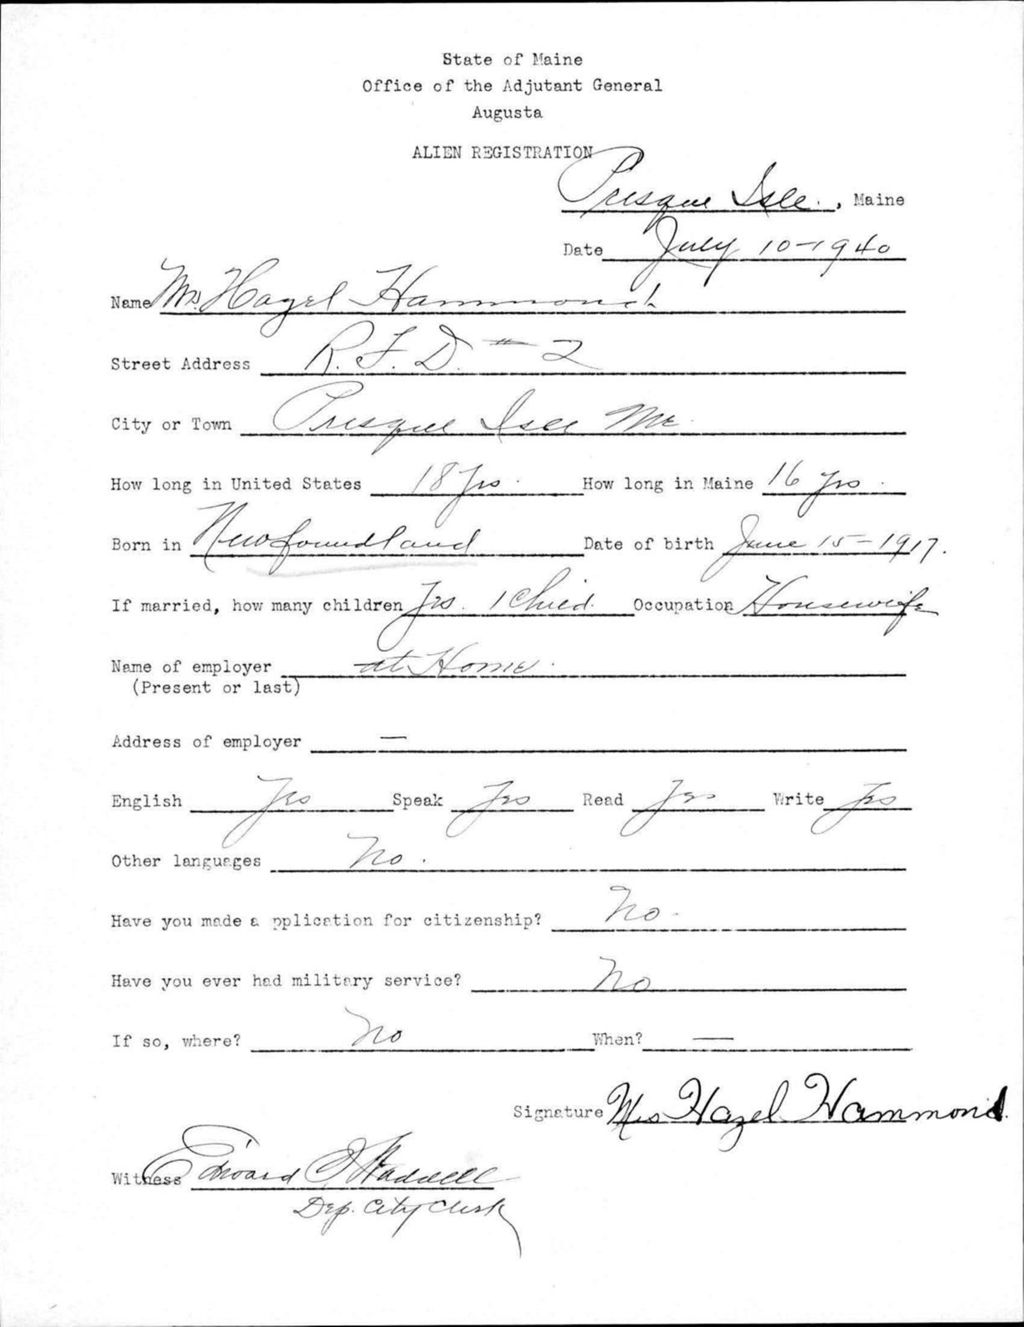 State of Maine
Office of the Adjutant General
Augusta
ALIEN REGISTRATION
Presque Isle., Maine
Date July 10-1940
Name Mrs Hazel Hammond
Street Address R.F.D. #2
City or Town Presque Isle Me.
How long in United States 18 Yrs. How long in Maine 16 Yrs.
Born in Newfoundland Date of birth June 15-1917.
If married, how many children Yes. 1 Child. Occupation Housewife
Name of employer at Home.
(Present or last)
Address of employer —
English Yes Speak Yes Read Yes Write Yes
Other languages No.
Have you made a pplication for citizenship? No.
Have you ever had military service? No
If so, where? No When? —
Signature Mrs Hazel Hammond.
Witness Edward
Dep. City Clerk